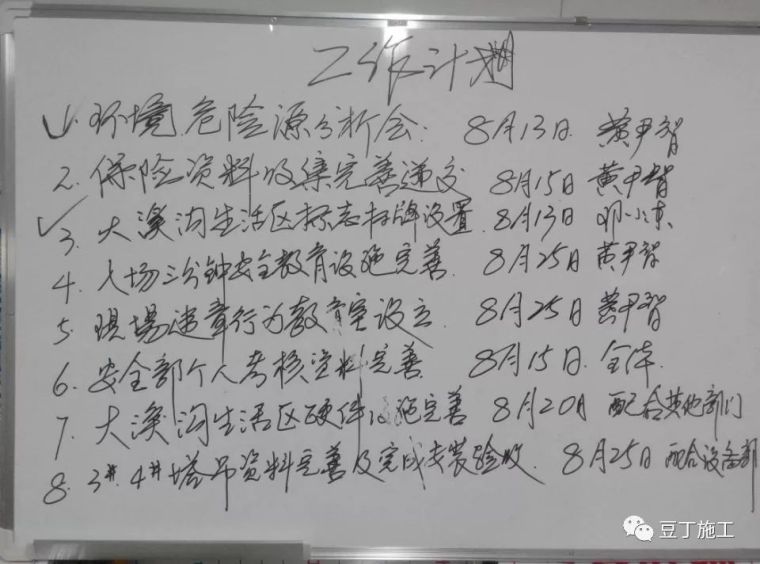 工作计划
✓1. 环境危险源分析会. 8月13日. 黄尹智
2. 保险资料收集完善递交 8月15日 黄尹智
✓3. 大溪沟生活区标志标牌设置 8月13日 邓小东
4. 入场三分钟安全教育设施完善. 8月25日 黄尹智
5. 现场违章行为教育室设立. 8月25日 黄尹智
6. 安全部个人考核资料完善 8月15日. 全体.
7. 大溪沟生活区硬件设施完善 8月20日 配合其他部门
8. 3# 4#塔吊资料完善及完成安装验收. 8月25日 配合设备部
豆丁施工